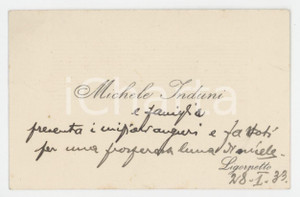 Michele Induni
e famiglia
presenta i migliori auguri e fa voti
per una prospera luna di miele.
Ligornetto
28-I-33